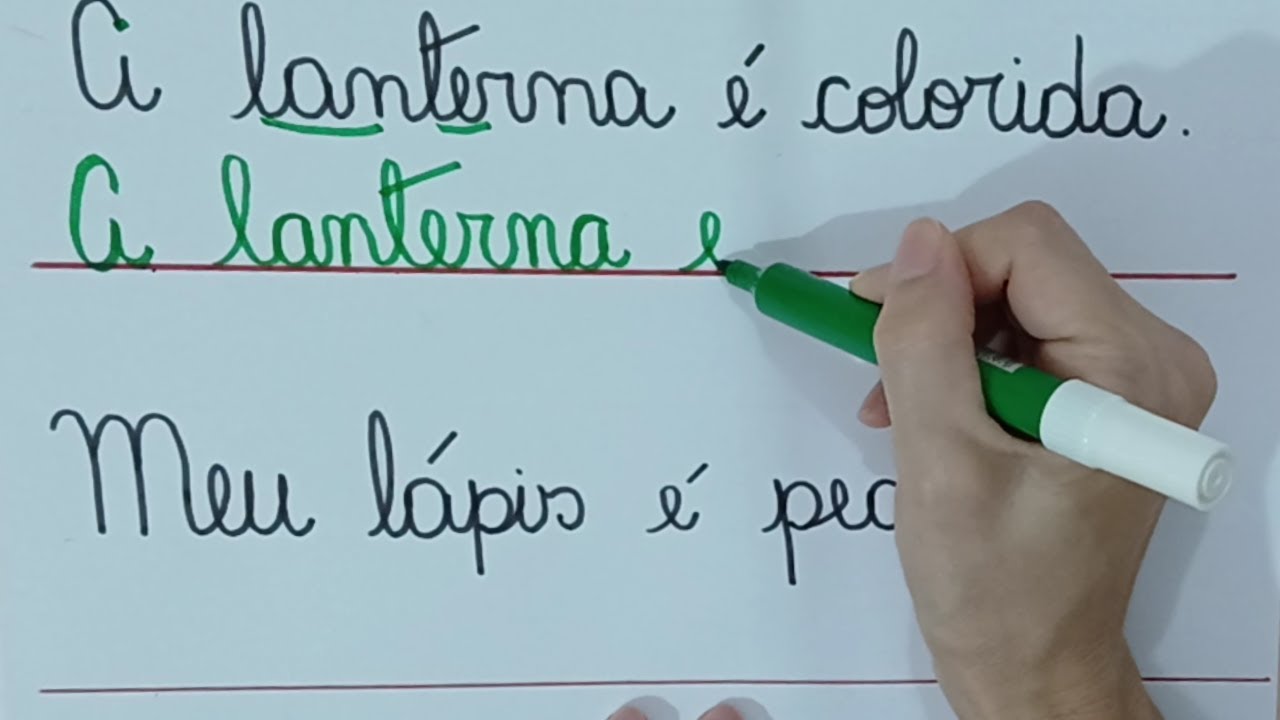 A lanterna é colorida.
A lanterna e
Meu lápis é